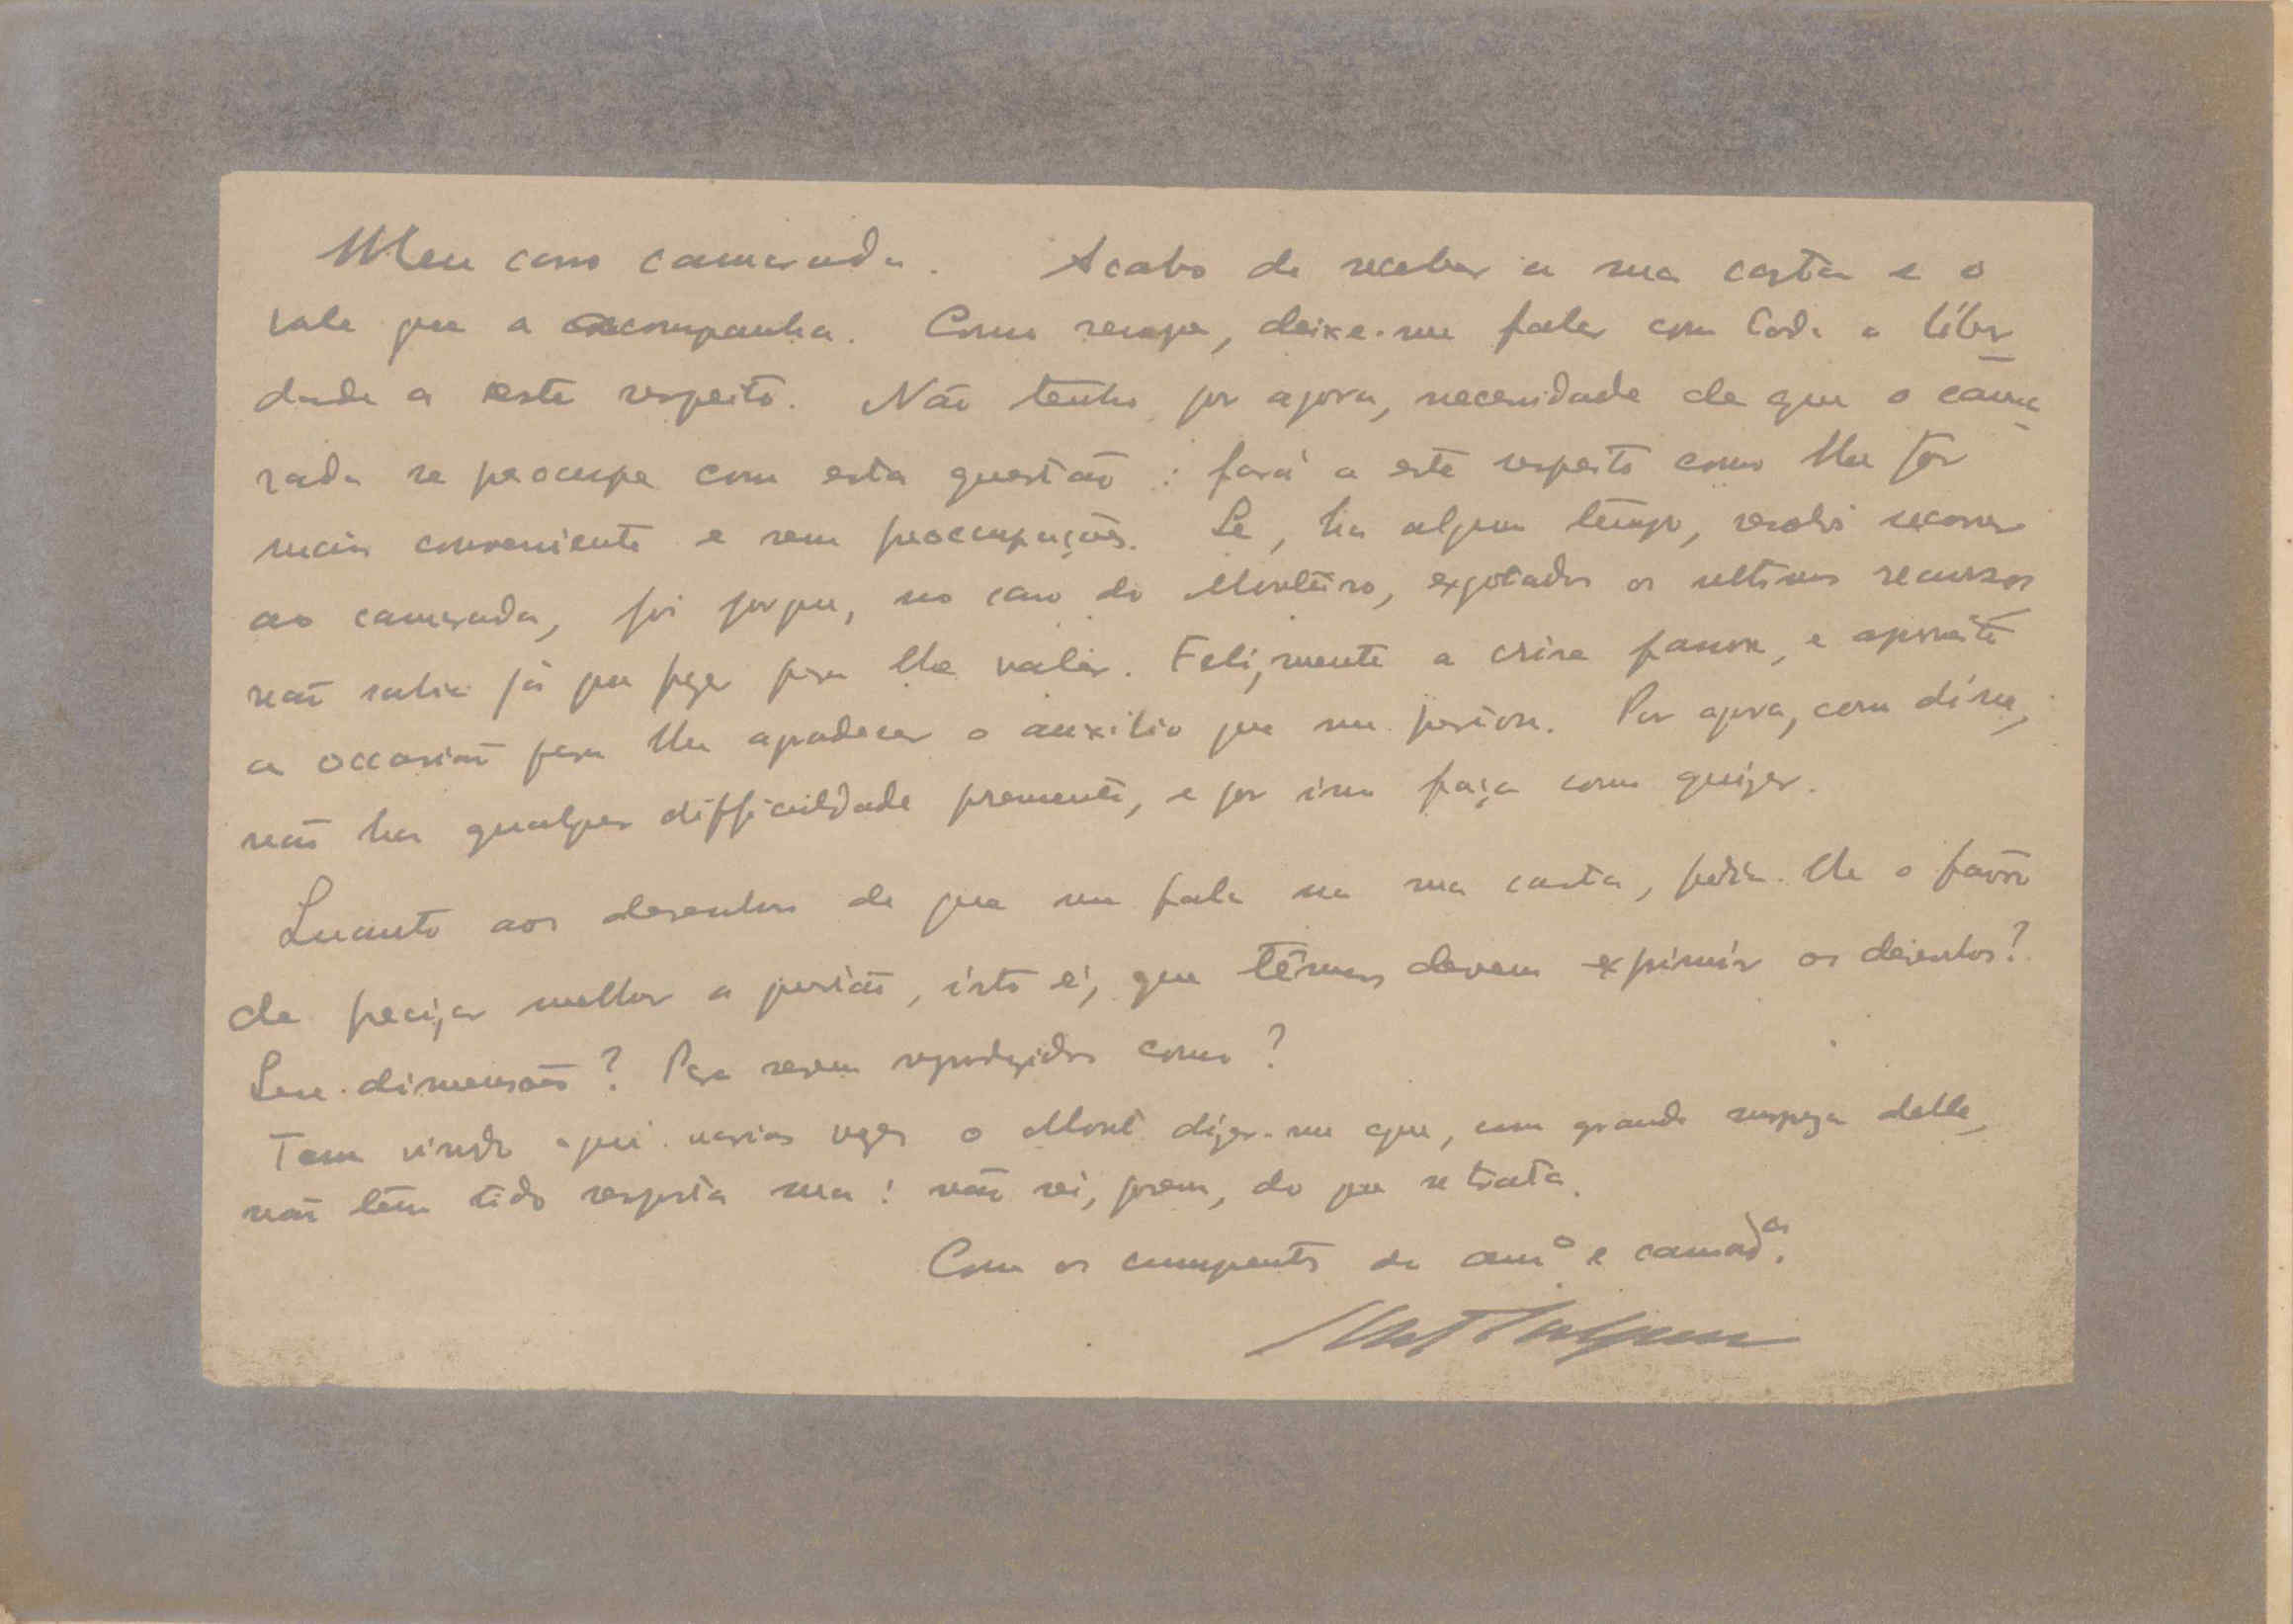 Meu caro camarada. Acabo de receber a sua carta e o
vale que a acompanha. Como sempre, deixe-me fallar com toda a liber
dade a este respeito. Não tenho, por agora, necessidade de que o cama
rada se preocupe com esta questão: fará a este respeito como lhe fôr
mais conveniente e sem preoccupações. Se, ha algum tempo, resolvi recorrer
ao camarada, foi porque, no caso do Monteiro, exgotados os ultimos recursos
não sabia já que fazer para lhe valer. Felizmente a crise passou, e aproveito
a occasião para lhe agradecer o auxilio que me prestou. Por agora, como disse,
não ha qualquer difficuldade premente, e por isso faça como quizer.
Quanto aos desenhos de que me falla na sua carta, pedia-lhe o favor
de precizar melhor a questão, isto é, que têmas devem exprimir os desenhos?
Sua dimensão? Para serem reproduzidos como?
Tem vindo aqui varias vezes o Mont. dizer-me que, com grande surpreza delle,
não têm tido resposta sua: não sei, porem, do que se trata.
Com os cumprimentos do am.º e camard.ª